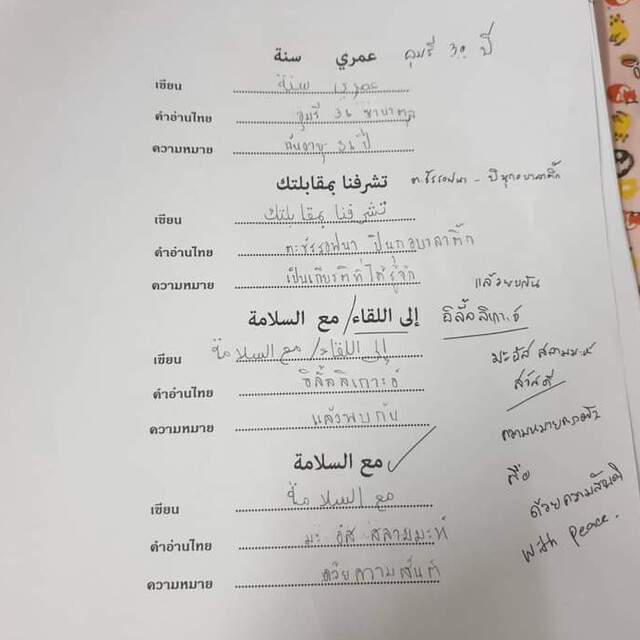 عمري سنة อุมรี 30 ปี
เขียน عمري سنة
คำอ่านไทย อุมรี 36 ซานาตุล
ความหมาย ฉันอายุ 36 ปี
تشرفنا بمقابلتك ตะชัรรอฟนา - บิมุกอบาลาติ้ก
เขียน تشرفنا بمقابلتك
คำอ่านไทย ตะชัรรอฟนา บิมุกอบาลาติ้ก
ความหมาย เป็นเกียรติที่ได้รู้จัก
แล้วพบกัน
إلى اللقاء/ مع السلامة อิลั้ลลิกาะอ์
เขียน إلى اللقاء/ مع السلامة
มะอัส สลามมะห์
คำอ่านไทย อิลั้ลลิกาะอ์
สวัสดี
ความหมาย แล้วพบกัน
مع السلامة
คือ
เขียน مع السلامة
ด้วยความสันติ
คำอ่านไทย มะ อัส สลามมะห์
with peace.
ความหมาย ด้วยความสันติ